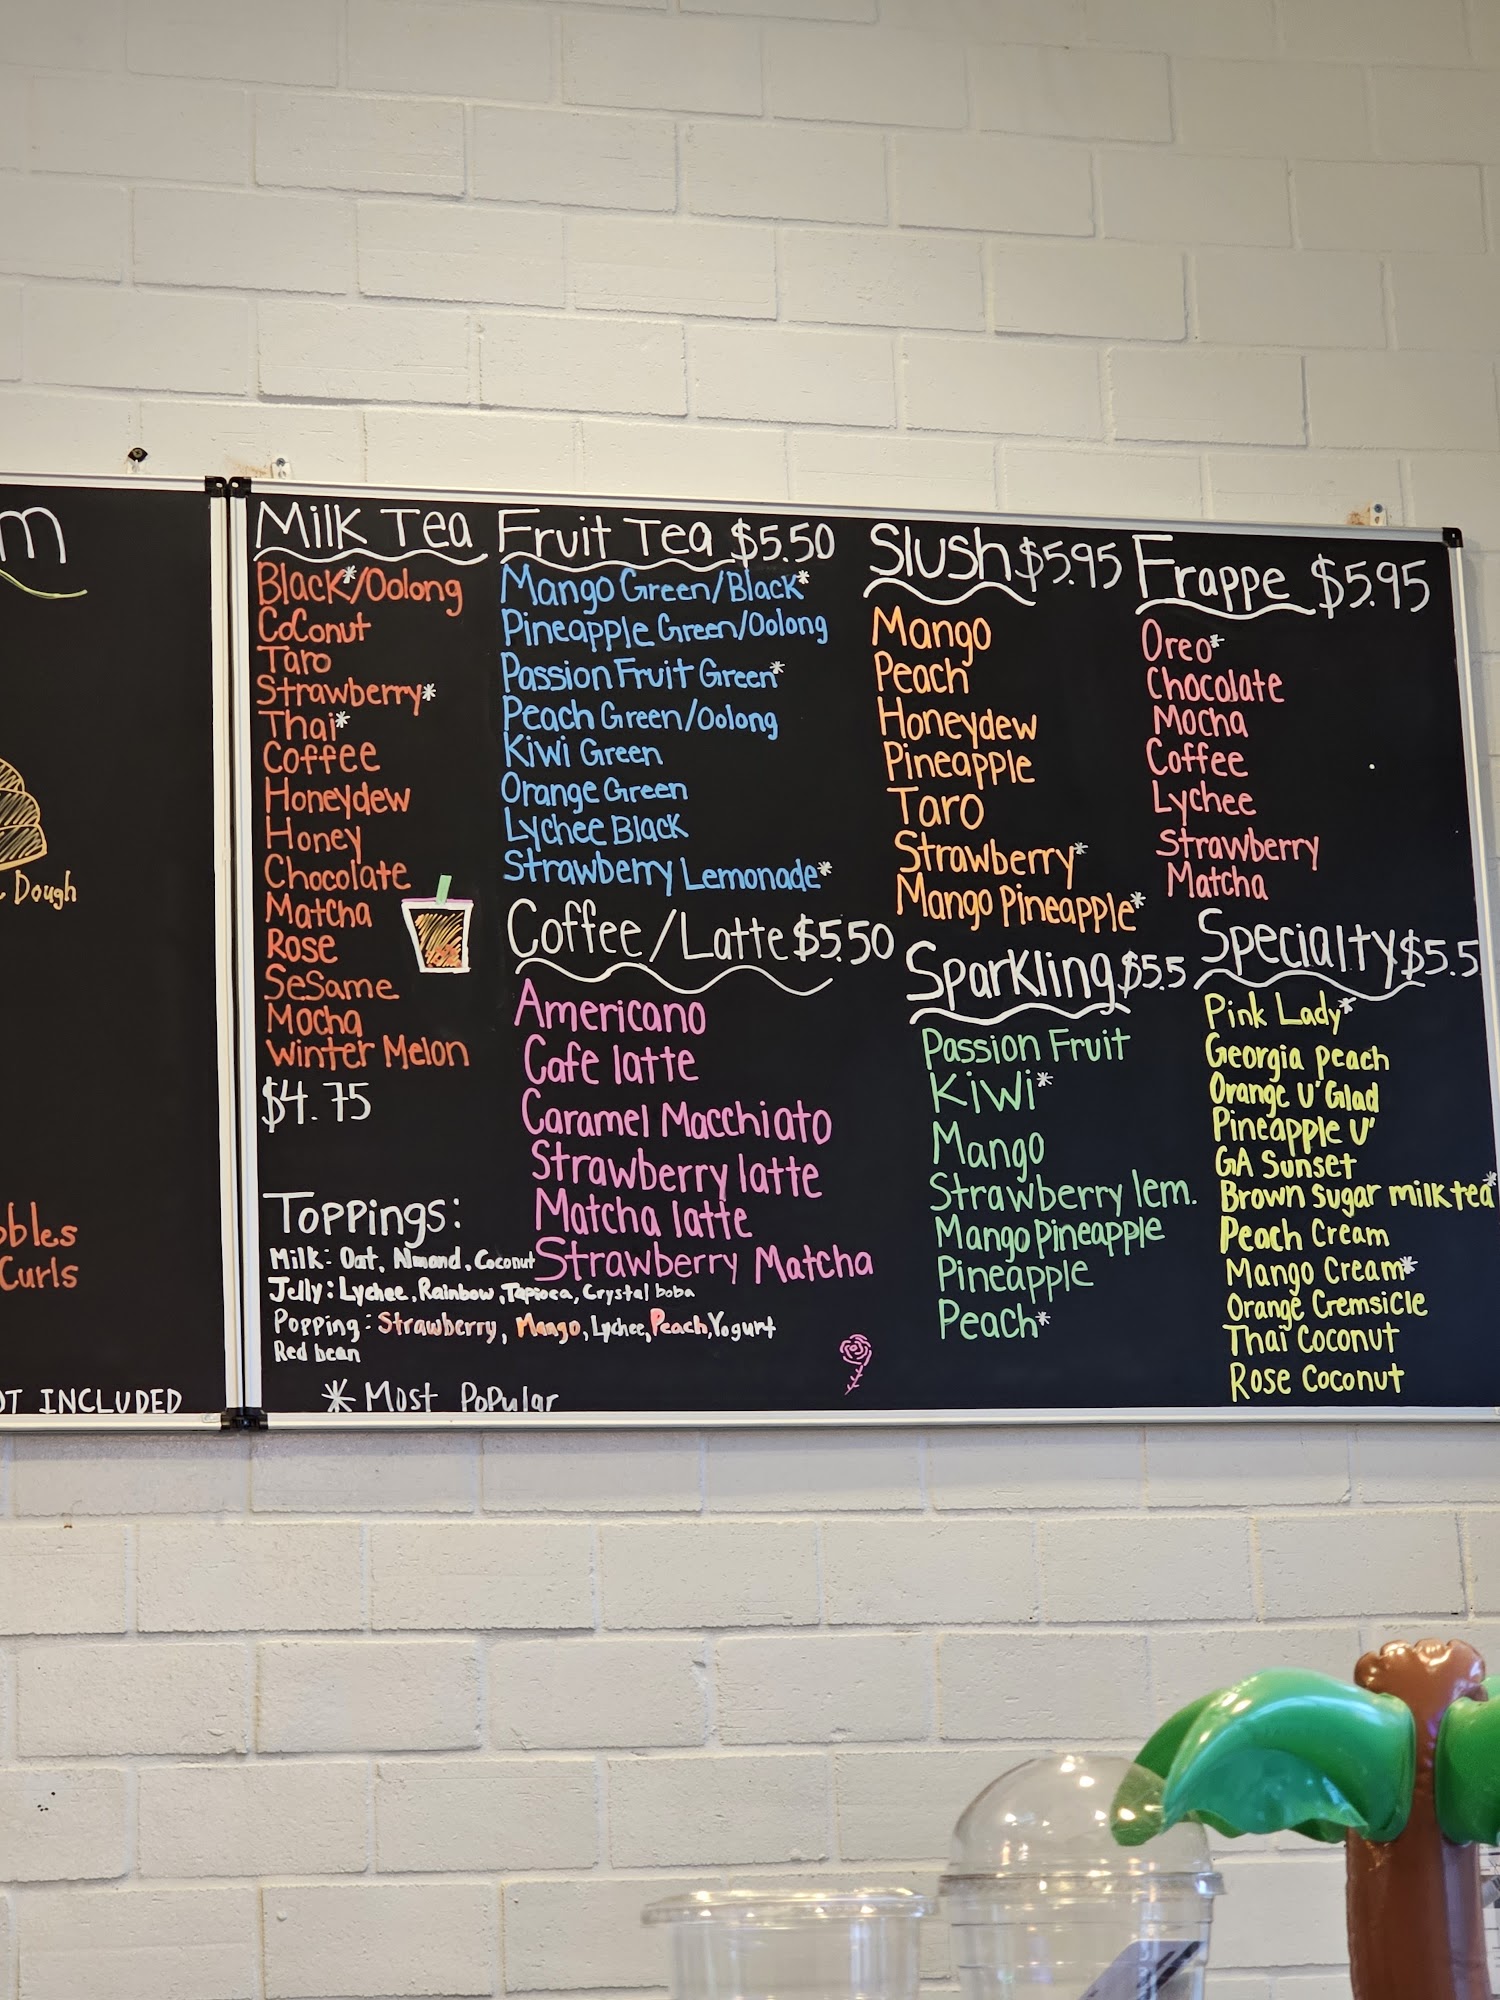 m
Dough
bbles
Curls
OT INCLUDED
Milk Tea
Black*/Oolong
Coconut
Taro
Strawberry*
Thai*
Coffee
Honeydew
Honey
Chocolate
Matcha
Rose
Sesame
Mocha
Winter Melon
$4.75
Toppings:
Milk: Oat, Almond, Coconut
Jelly: Lychee, Rainbow, Tapioca, Crystal boba
Popping: Strawberry, Mango, Lychee, Peach, Yogurt
Red bean
* Most Popular
Fruit Tea $5.50
Mango Green/Black*
Pineapple Green/Oolong
Passion Fruit Green*
Peach Green/Oolong
Kiwi Green
Orange Green
Lychee Black
Strawberry Lemonade*
Coffee/Latte $5.50
Americano
Cafe latte
Caramel Macchiato
Strawberry latte
Matcha latte
Strawberry Matcha
Slush $5.95
Mango
Peach
Honeydew
Pineapple
Taro
Strawberry*
Mango Pineapple*
Sparkling $5.5
Passion Fruit
Kiwi*
Mango
Strawberry lem.
Mango Pineapple
Pineapple
Peach*
Frappe $5.95
Oreo*
Chocolate
Mocha
Coffee
Lychee
Strawberry
Matcha
Specialty $5.5
Pink Lady*
Georgia peach
Orange U' Glad
Pineapple U'
GA Sunset
Brown sugar milk tea*
Peach Cream
Mango Cream*
Orange Cremsicle
Thai Coconut
Rose Coconut